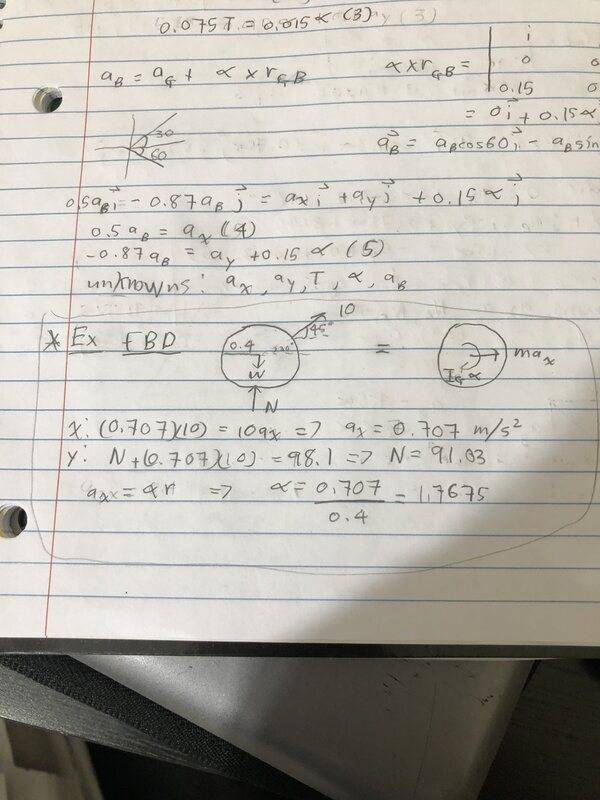 0.075T = 0.015α (3)
a_B = a_G + α x r_GB
α x r_GB = | i
0 0
0.15 0
= 0i + 0.15α
30
60
a_B = a_B cos60 i - a_B sin
0.5a_B i - 0.87a_B j = a_x i + a_y j + 0.15α j
0.5a_B = a_x (4)
-0.87a_B = a_y + 0.15α (5)
unknowns: a_x, a_y, T, α, a_B
* Ex FBD
10
45°
0.4
W
N
=
I_G α
ma_x
x: (0.707)(10) = 10a_x => a_x = 0.707 m/s²
y: N + (0.707)(10) = 98.1 => N = 91.03
a_x = αr => α = 0.707/0.4 = 1.7675